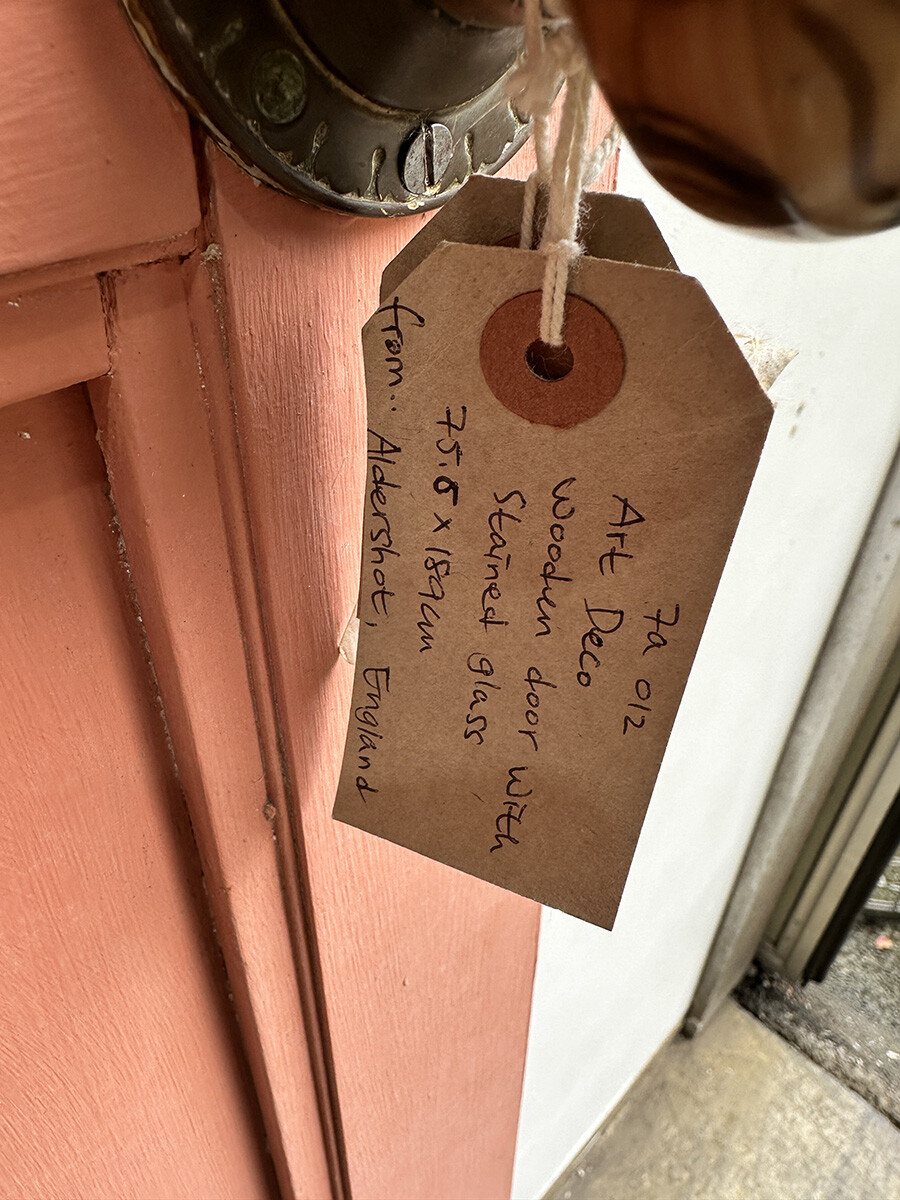 7a 012
Art Deco
wooden door with
Stained glass
75.5 x 189cm
from.. Aldershot, England